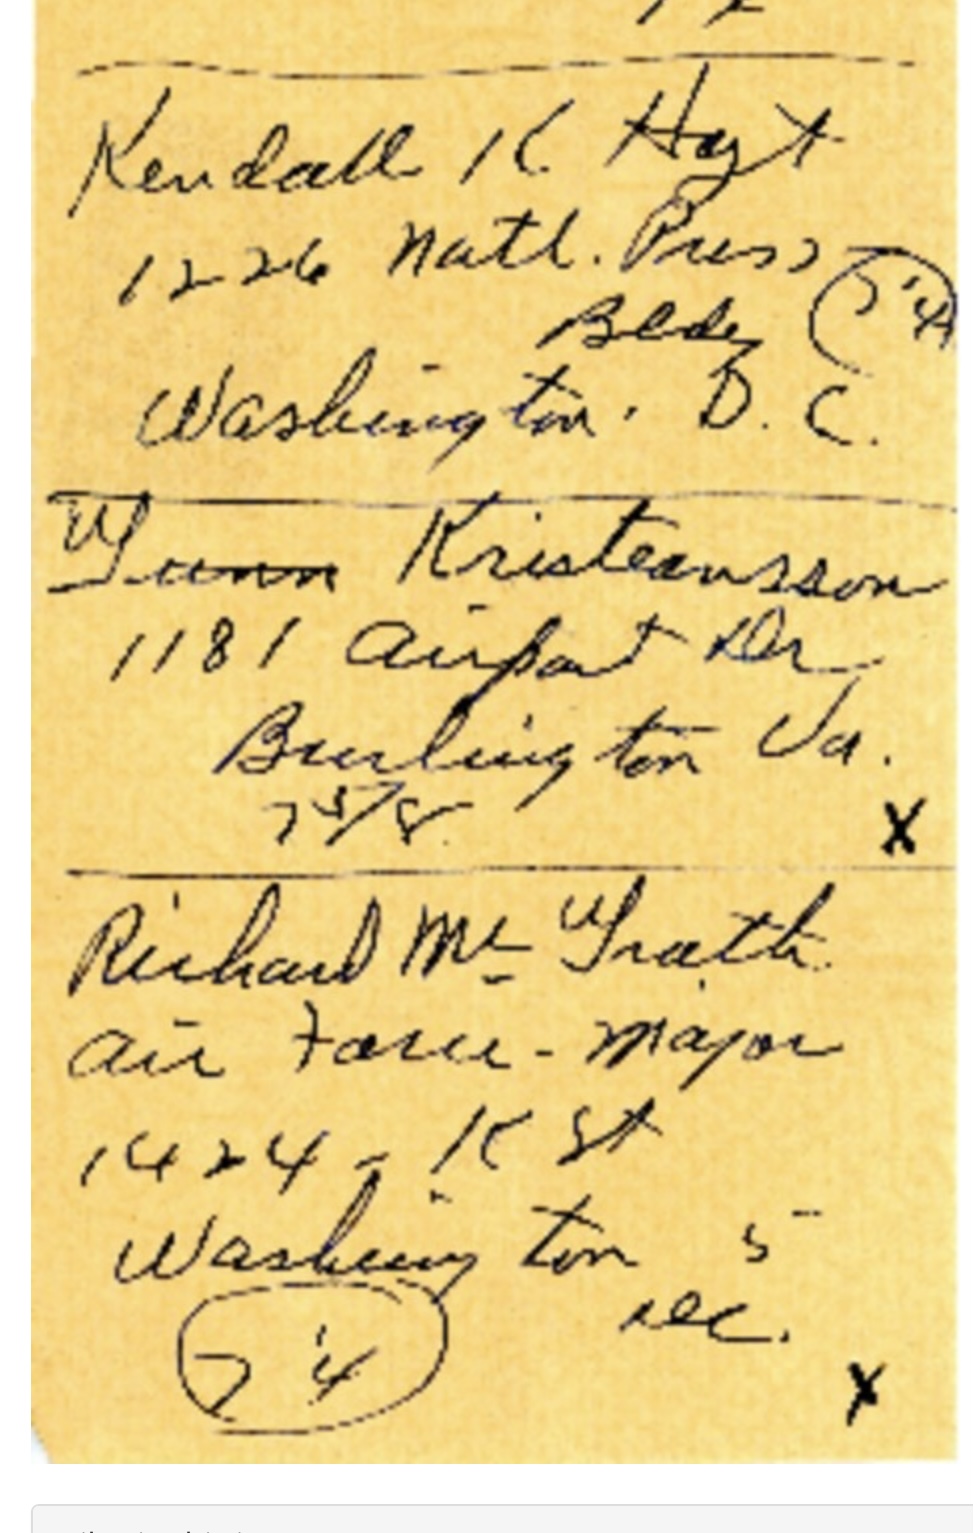 Kendall K. Hoyt
1226 Natl. Press
Bldg 7 1/4
Washington. D. C.
Gunn Kristeansson
1181 Airport Dr
Burlington Va.
7 5/8 X
Richard Mc Grath
Air Force - Major
1424 - K St
Washington 5
DC.
7 1/4
X